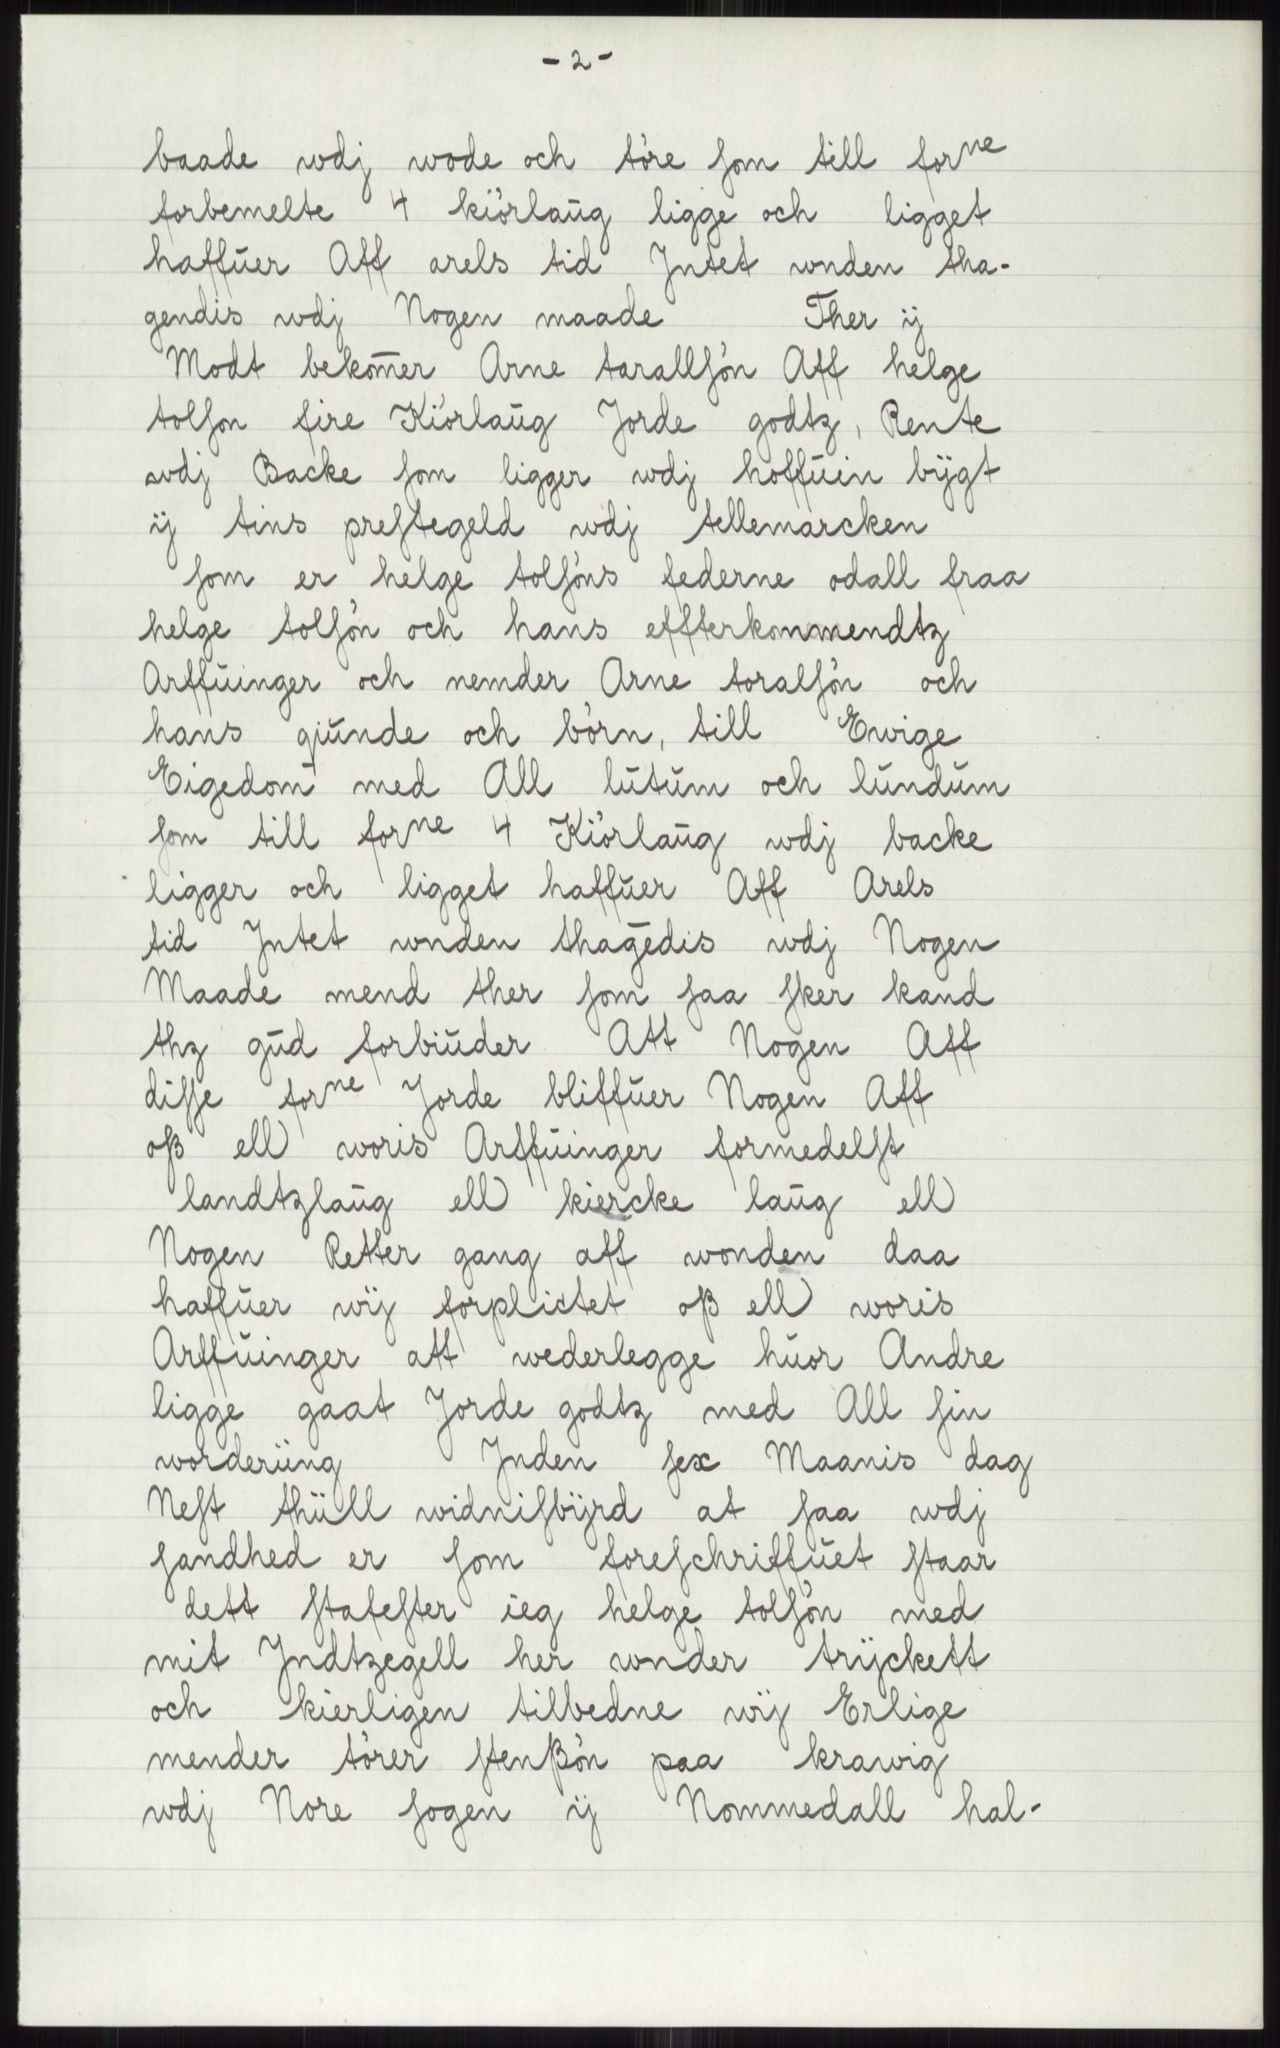 - 2 -
baade wdj wode och töre som till forne
forbemelte 4 kiörlaug ligge och ligget
haffuer Aff arels tid Jntet wnden tha-
gendis wdj Nogen maade Ther ij
Modt bekom̄er Arne tarallsön Aff helge
tolson fire Kiörlaug Jorde godtz, Rente
wdj Backe som ligger wdj hoffuin bÿgt
ij tins prestegeld wdj tellemarcken
som er helge tolsöns federne odall fraa
helge tolsön och hans effterkommendtz
Arffuinger och nemder Arne toralsön och
hans qiunde och börn, till Ewige
Eigedom med All lutum och lundum
som till forne 4 Kiörlaug wdj backe
ligger och ligget haffuer Aff Arels
tid Jntet wnden thagēdis wdj Nogen
Maade mend ther som saa sker kand
thz gud forbiuder Att Nogen Aff
disse forne Jorde bliffuer Nogen Aff
oß ell woris Arffuinger formedelst
landtzlaug ell kiercke laug ell
Nogen Retter gang aff wonden daa
haffuer wij forplictet oß ell woris
Arffuinger att wederlegge huor Andre
ligge gaat Jorde godtz med All sin
worderüng Jnden sex Maanis dag
Nest thüll widnisbÿrd at saa wdj
sandhed er som foreschriffuet staar
dett stafester ieg helge tolsön med
mit Jndtzegell her wnder trÿckett
och kierligen tilbedne wij Erlige
mender törer stenßön paa krawig
wdj Nore sogen ij Nommedall hal-